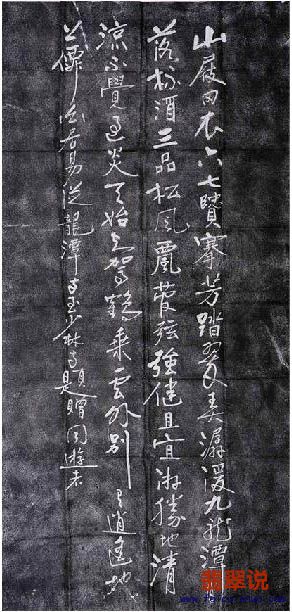 山屐田衣六七賢搴芳踏翠弄潺湲九龍潭
落杯酒三品松風飄管弦強健且宜游勝地清
涼不覺過炎天始知駕鶴乘雲外別有逍遙地
上僊 白居易從龍潭寺至少林寺題贈同遊者
翡翠说